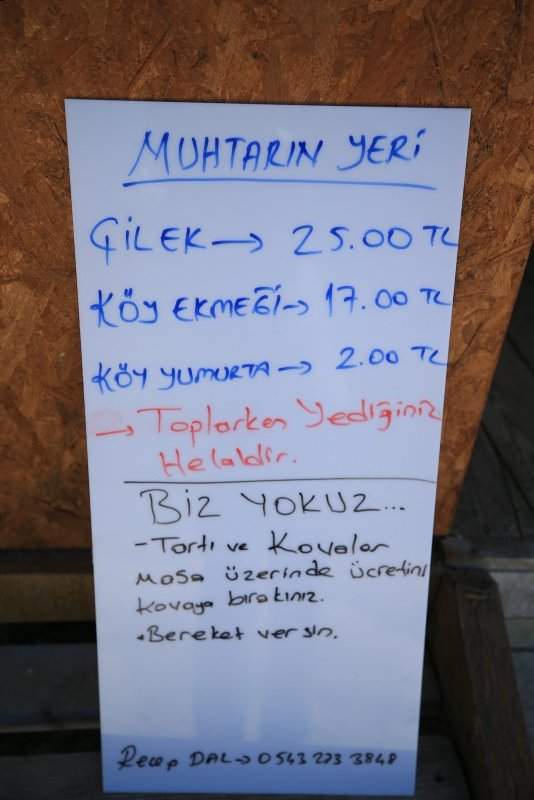 MUHTARIN YERİ
ÇİLEK → 25.00 TL
KÖY EKMEĞİ → 17.00 TL
KÖY YUMURTA → 2.00 TL
→ Toplarken Yediğiniz
Helaldir.
BİZ YOKUZ...
- Tartı ve Kovalar
masa üzerinde ücretini
Kovaya bırakınız.
• Bereket versin.
Recep DAL → 0543 273 3848